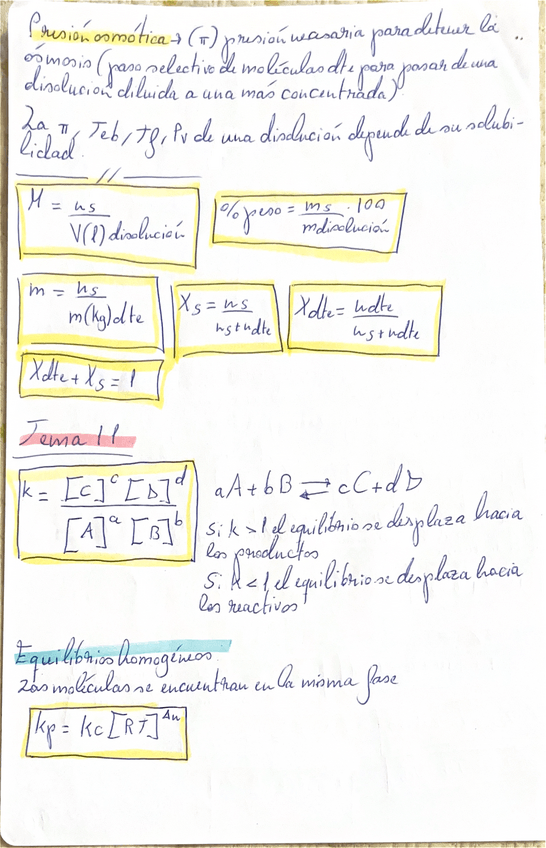 Presión osmótica → (π) presión necesaria para detener la
ósmosis (paso selectivo de moléculas dte para pasar de una
disolución diluida a una más concentrada)
La π, Teb, Tf, Pv de una disolución depende de su solubi-
lidad.
M = ns / V(l) disolución
% peso = ms / m disolución · 100
m = ns / m(kg) dte
Xs = ns / ns + ndte
Xdte = ndte / ns + ndte
Xdte + Xs = 1
Tema 11
k = [C]^c [D]^d / [A]^a [B]^b
aA + bB ⇌ cC + dD
Si k > 1 el equilibrio se desplaza hacia
los productos
Si k < 1 el equilibrio se desplaza hacia
los reactivos
Equilibrios homogéneos
Las moléculas se encuentran en la misma fase
kp = kc [RT]^Δn